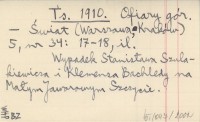 Ts. 1910. Ofiary gór.
— Świat (Warszawa, Kraków)
5, nr 34: 17-18, il.
Wypadek Stanisława Szula-
kiewicza i Klemensa Bachledy na
Małym Jaworowym Szczycie.
BZ